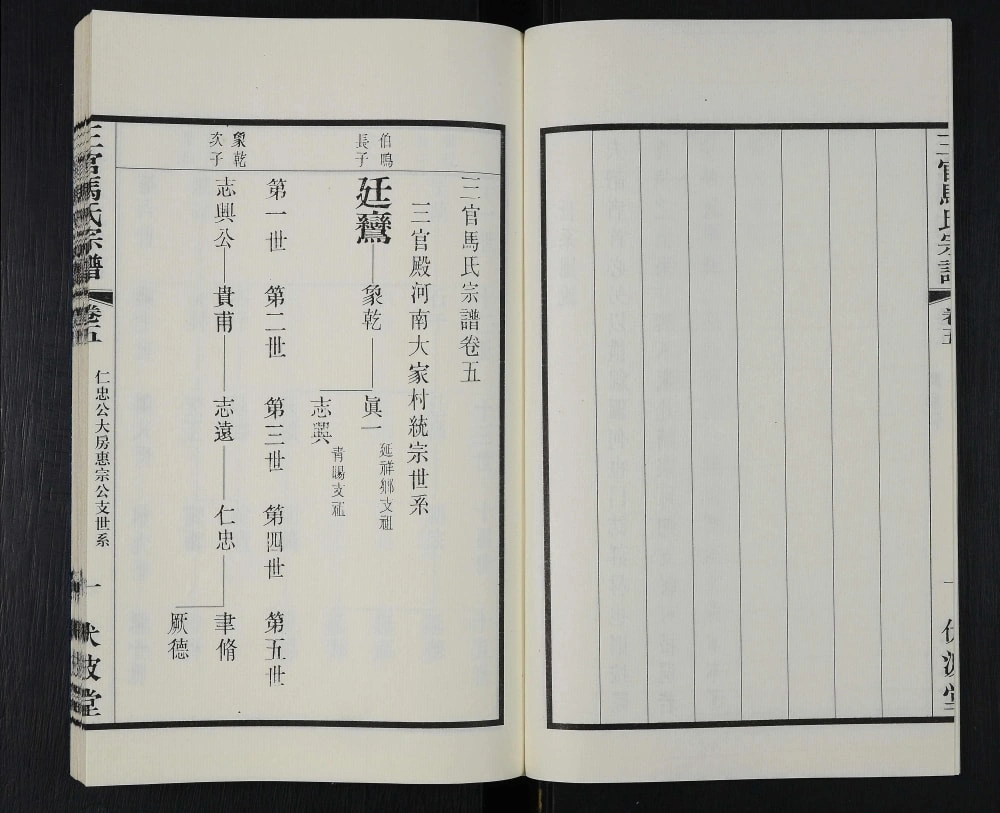 三官馬氏宗譜
卷五
伏波堂
三官馬氏宗譜卷五
三官殿河南大家村統宗世系
伯鳴長子
廷鸞
象乾
眞一
延祥鄉支祖
志興
青陽支祖
第一世
第二世
第三世
第四世
第五世
象乾次子
志興公
貴甫
志遠
仁忠
聿脩
厥德
三官馬氏宗譜
卷五
仁忠公大房惠宗公支世系
一
伏波堂